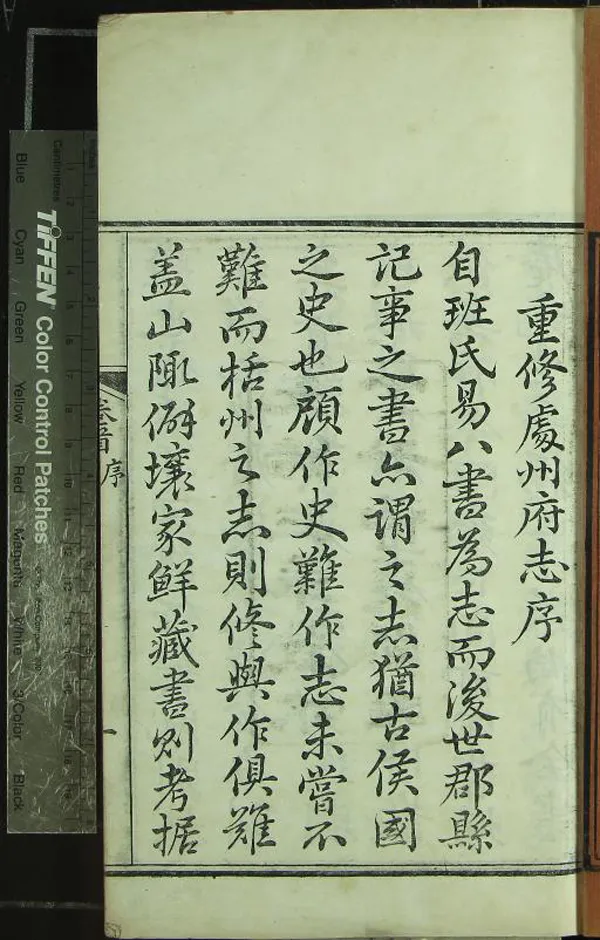 重修處州府志序
自班氏易八書為志而後世郡縣
記事之書亦謂之志猶古侯國
之史也顧作史難作志未嘗不
難而栝州之志則修與作俱難
盖山陬僻壤家鮮藏書則考据
卷首 序
一
Centimetres
Inches
TIFFEN Color Control Patches
Blue
Cyan
Green
Yellow
Red
Magenta
White
3/Color
Black